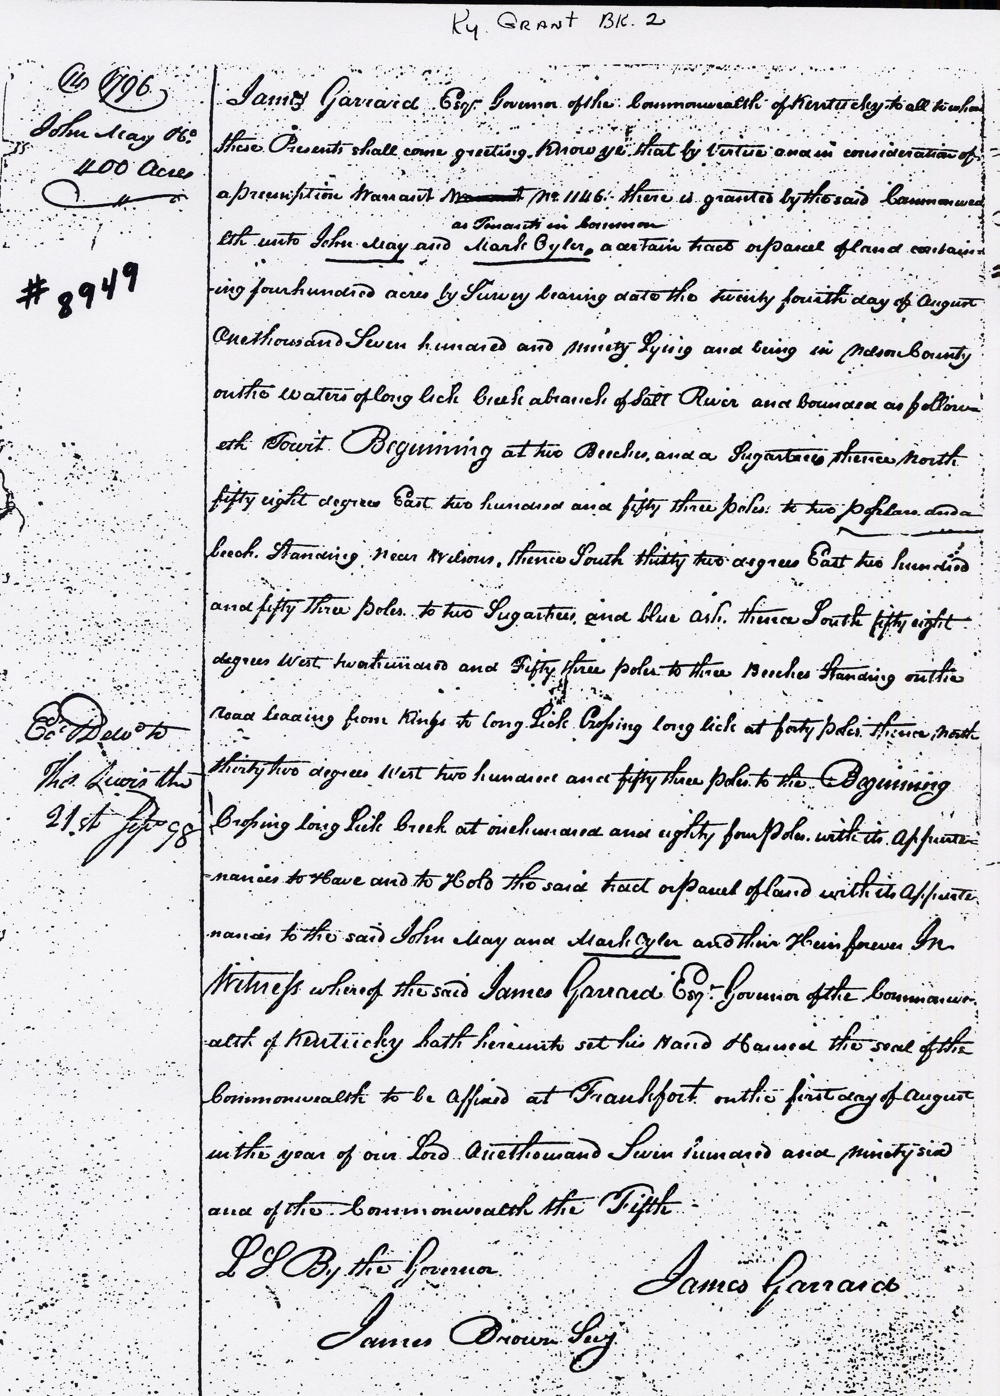 Ky. GRANT BK. 2
1796
John May &c.
400 Acres
# 8949
James Garrard Esqr. Governor of the Commonwealth of Kentucky to all to whom
these Presents shall come greeting. Know ye that by virtue and in consideration of
a preemption Warrant No. 1146. there is granted by the said Commonwea
as Tenants in Common
lth unto John May and Mark Oyler, a certain tract or parcel of land contain-
-ing four hundred acres by Survey bearing date the twenty fourth day of August
One thousand Seven hundred and ninety Lying and being in Nelson County
on the Waters of long lick Creek a branch of Salt River and bounded as follow-
eth Towit Beginning at two Beeches, and a Sugartree thence North
fifty eight degrees East two hundred and fifty three poles to two Poplars and a
beech Standing near Wilsons, thence South thirty two degrees East two hundred
and fifty three poles to two Sugartrees, and blue ash. thence South fifty eight
degrees West two hundred and Fifty three poles to three Beeches Standing on the
road leading from Kings to Long Lick Crossing long lick at forty poles thence North
thirty two degrees West two hundred and fifty three poles to the Beginning
Crossing long Lick Creek at one hundred and eighty four poles. with its Appurte-
-nances to Have and to Hold the said tract or parcel of land with its Appurte-
nances to the said John May and Mark Oyler and their Heirs forever In
Witness whereof the said James Garrard Esqr. Governor of the Commonwe-
alth of Kentucky hath hereunto set his Hand & Caused the seal of the
Commonwealth to be Affixed at Frankfort on the first day of August
in the year of our Lord One thousand Seven hundred and ninety six
and of the Commonwealth the Fifth
Ex. & Deld. to
Thos. Lewis the
21st Sepr. 98
L S By the Governor
James Garrard
James Brown Secy